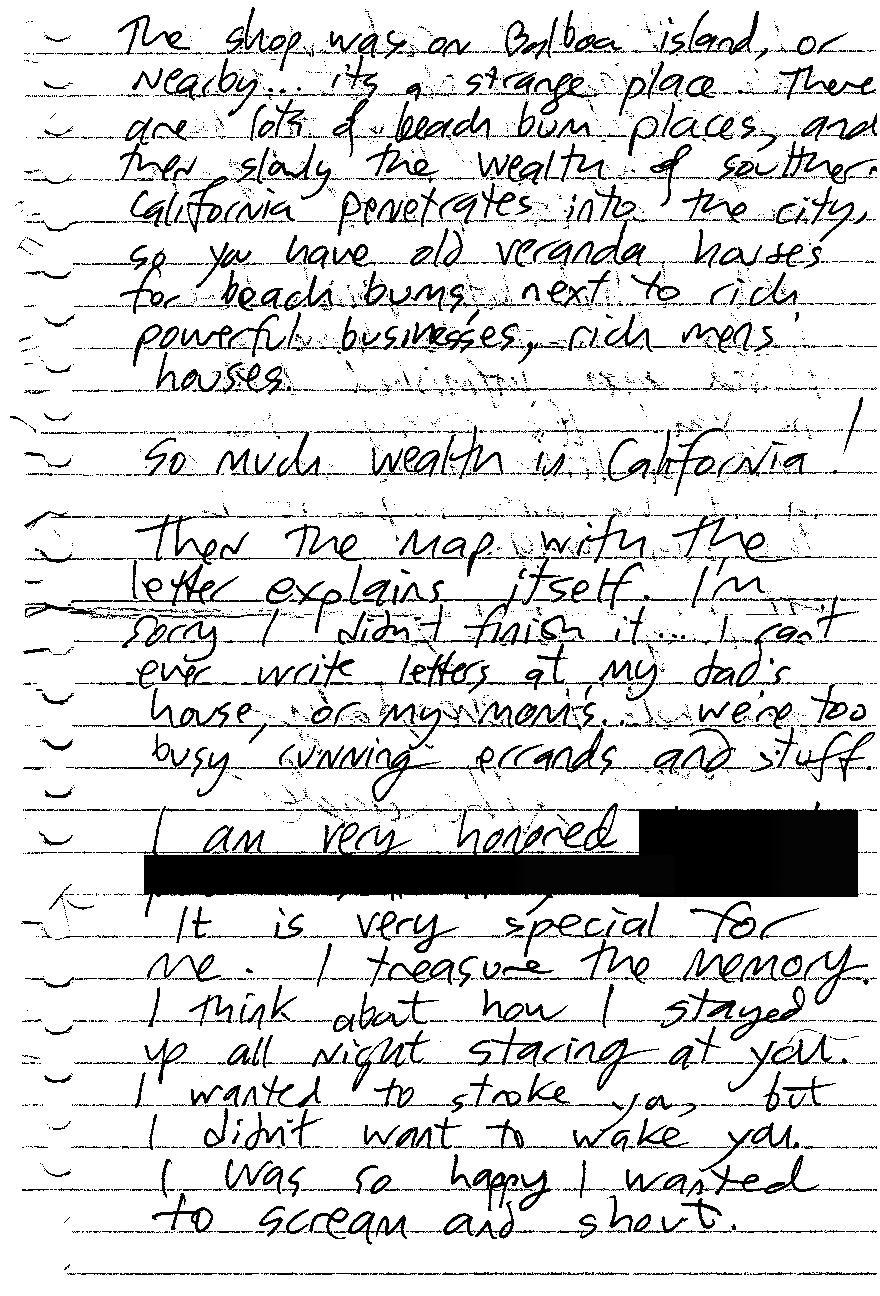 The shop was on Balboa island, or
Nearby... its a strange place. There
are lots of beach bum places, and
then slowly the wealth of southern
California penetrates into the city,
so you have old veranda houses
for beach bums, next to rich
powerful businesses, rich mens'
houses.
So much wealth in California!
Then the map with the
letter explains itself. I'm
sorry I didn't finish it... I can't
ever write letters at my dad's
house, or my mom's... we're too
busy running errands and stuff.
I am very honored
It is very special for
me. I treasure the memory.
I think about how I stayed
up all night staring at you.
I wanted to stroke you, but
I didn't want to wake you.
I was so happy I wanted
to scream and shout.